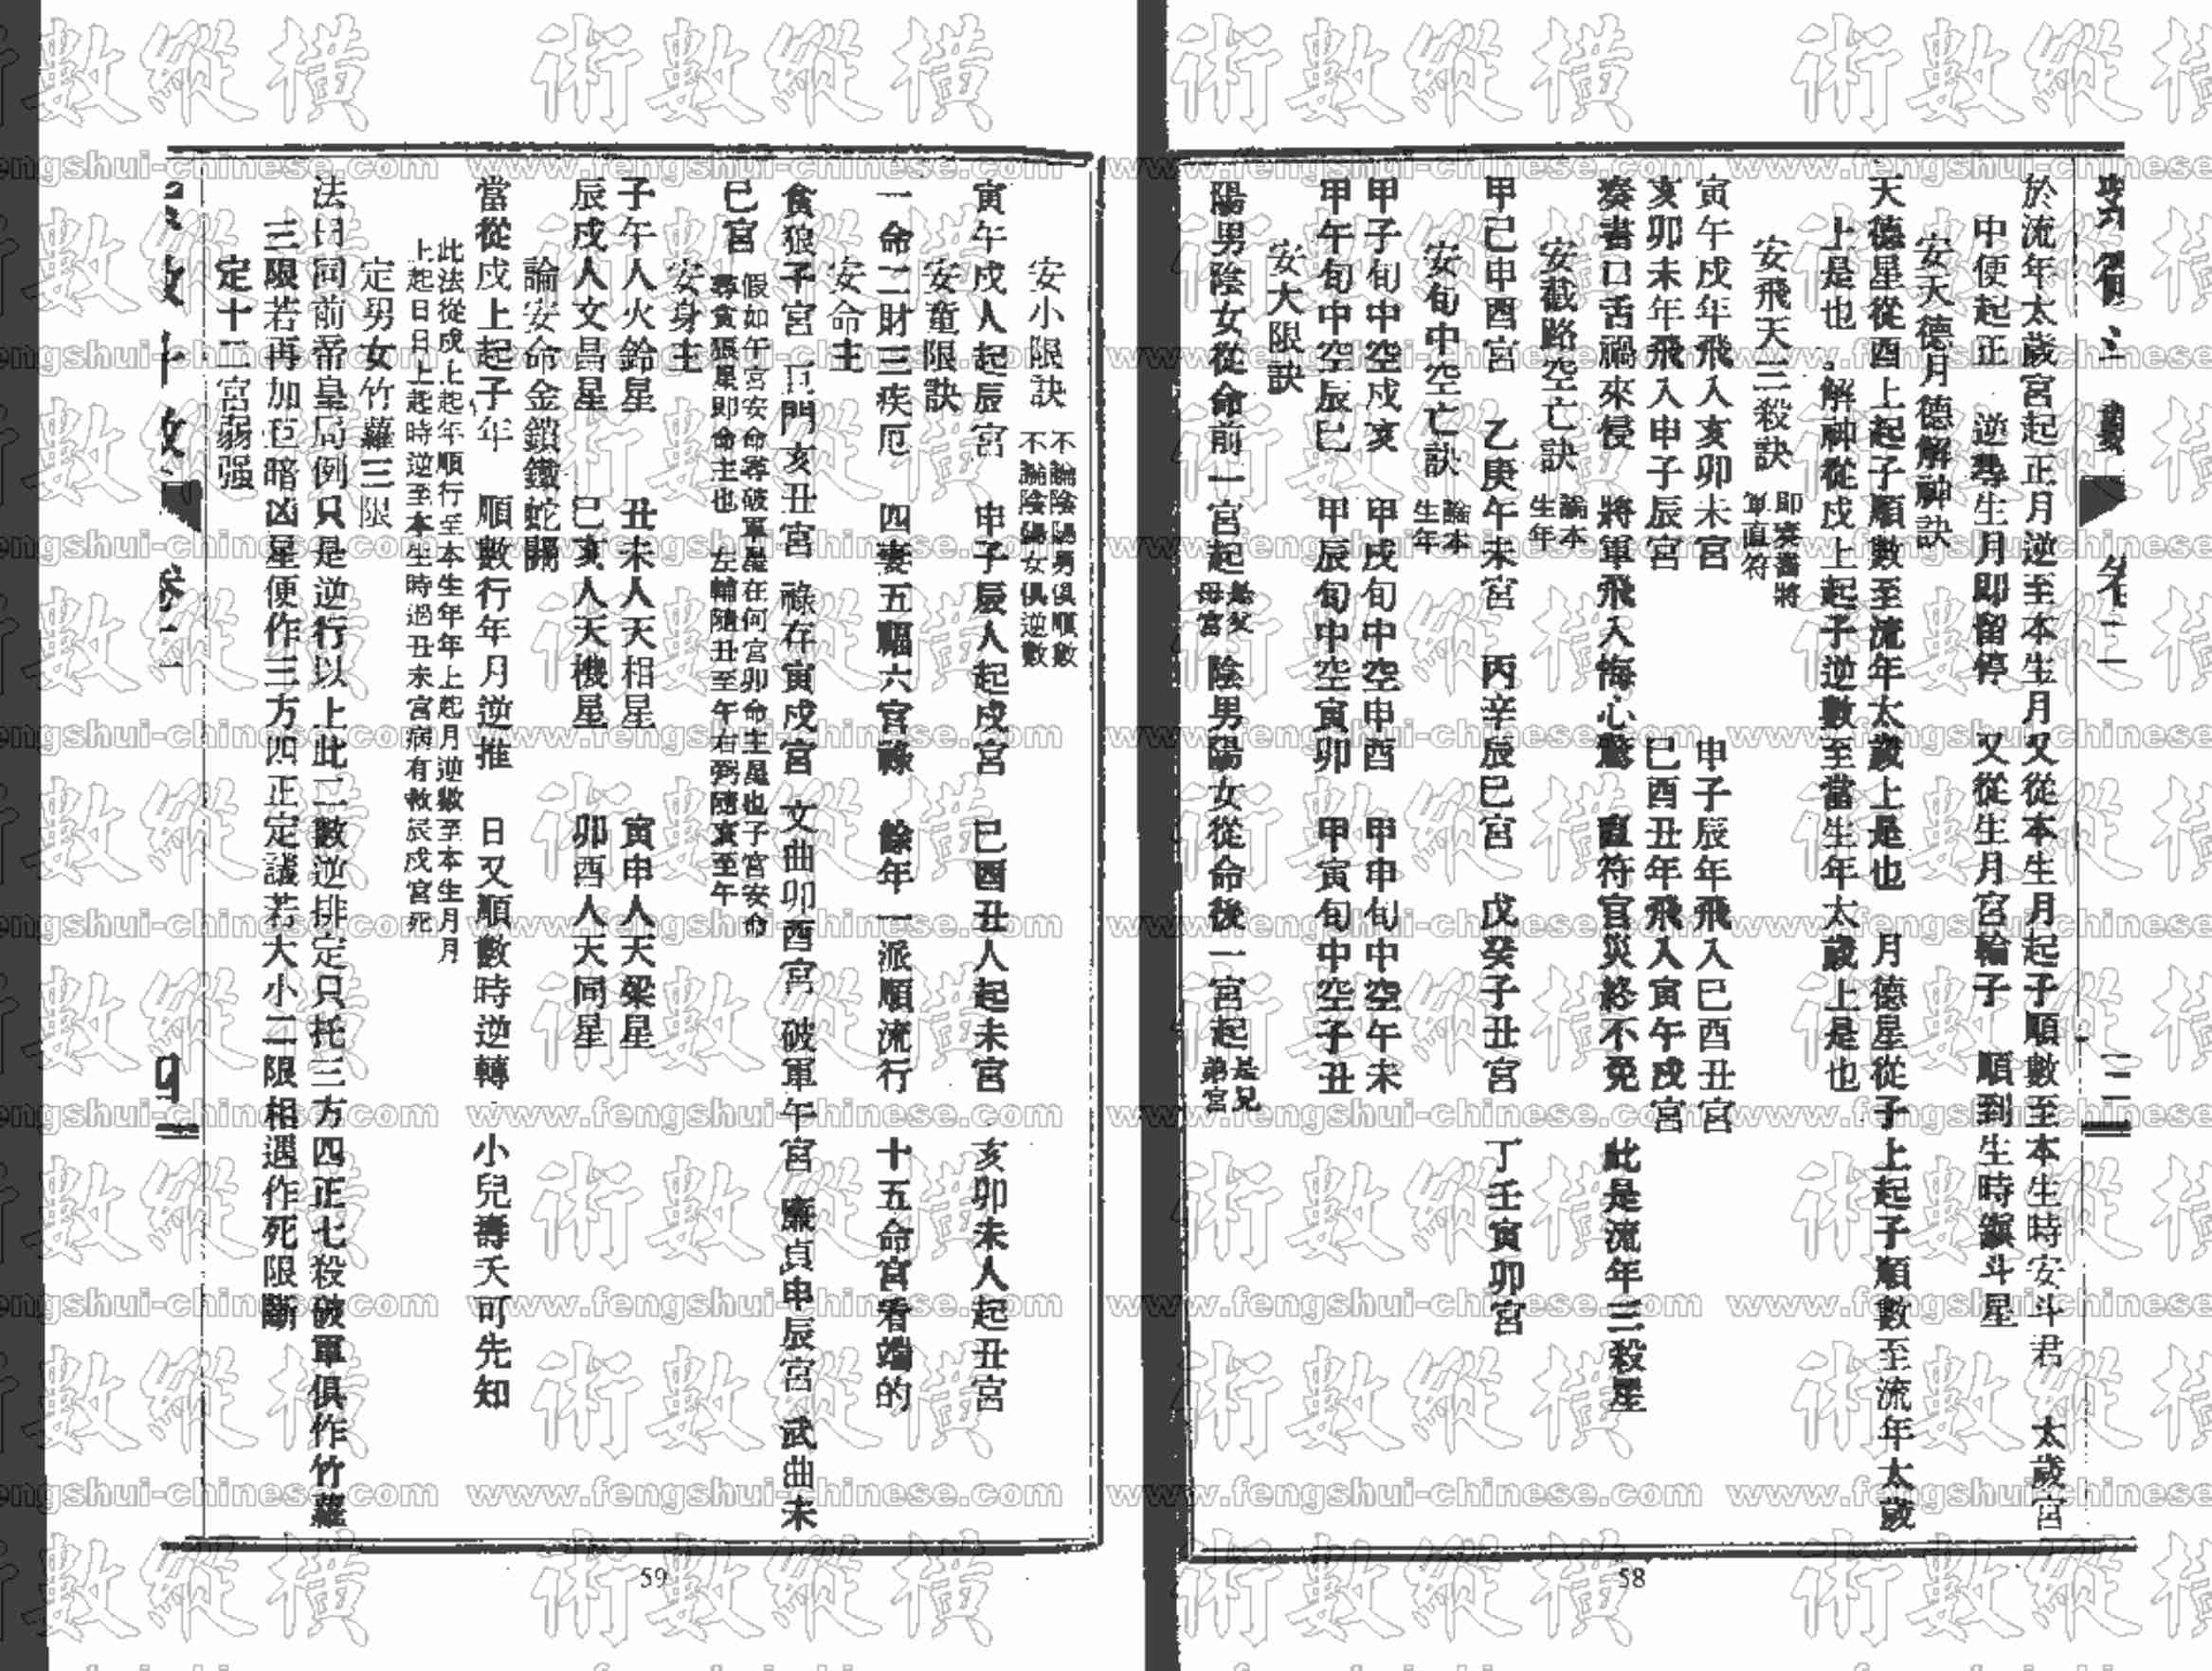 於流年太歲宮起正月逆至本生月又從本生月起子順數至本生時安斗君 太歲宮
中便起正 逆尋生月即留停 又從生月宮輪子 順到生時鎮斗星
安天德月德解神訣
天德星從酉上起子順數至流年太歲上是也 月德星從子上起子順數至流年太歲
上是也 解神從戌上起子逆數至當生年太歲上是也
安飛天三殺訣 即奏書將軍直符
寅午戌年飛入亥卯未宮 申子辰年飛入巳酉丑宮
亥卯未年飛入申子辰宮 巳酉丑年飛入寅午戌宮
奏書口舌禍來侵 將軍飛入悔心驚 直符官災終不免 此是流年三殺星
安截路空亡訣 論本生年
甲己申酉宮 乙庚午未宮 丙辛辰巳宮 戊癸子丑宮 丁壬寅卯宮
安旬中空亡訣 論本生年
甲子旬中空戌亥 甲戌旬中空申酉 甲申旬中空午未
甲午旬中空辰巳 甲辰旬中空寅卯 甲寅旬中空子丑
安大限訣
陽男陰女從命前一宮起 是父母宮 陰男陽女從命後一宮起 是兄弟宮
58
安小限訣 不論陰陽男俱順數 不論陰陽女俱逆數
寅午戌人起辰宮 申子辰人起戌宮 巳酉丑人起未宮 亥卯未人起丑宮
安童限訣
一命二財三疾厄 四妻五福六官祿 餘年一派順流行 十五命宮看端的
安命主
貪狼子宮 巨門亥丑宮 祿存寅戌宮 文曲卯酉宮 破軍午宮 廉貞申辰宮 武曲未
巳宮 假如午宮安命尋破軍星在何宮卯命主星也子宮安命
尋貪狼星即命主也 左輔隨丑至午右弼隨亥至午
安身主
子午人火鈴星 丑未人天相星 寅申人天梁星
辰戌人文昌星 巳亥人天機星 卯酉人天同星
論安命金鎖鐵蛇關
當從戌上起子年 順數行年月逆推 日又順數時逆轉 小兒壽夭可先知
此法從戌上起年順行至本生年年上起月逆數至本生月月
上起日日上起時逆至本生時過丑未宮病有救辰戌宮死
定男女竹蘿三限
法曰同前帝皇局例只是逆行以上此二數逆排定只托三方四正七殺破軍俱作竹蘿
三限若再加巨暗凶星便作三方四正定議若大小二限相遇作死限斷
定十二宮弱强
59